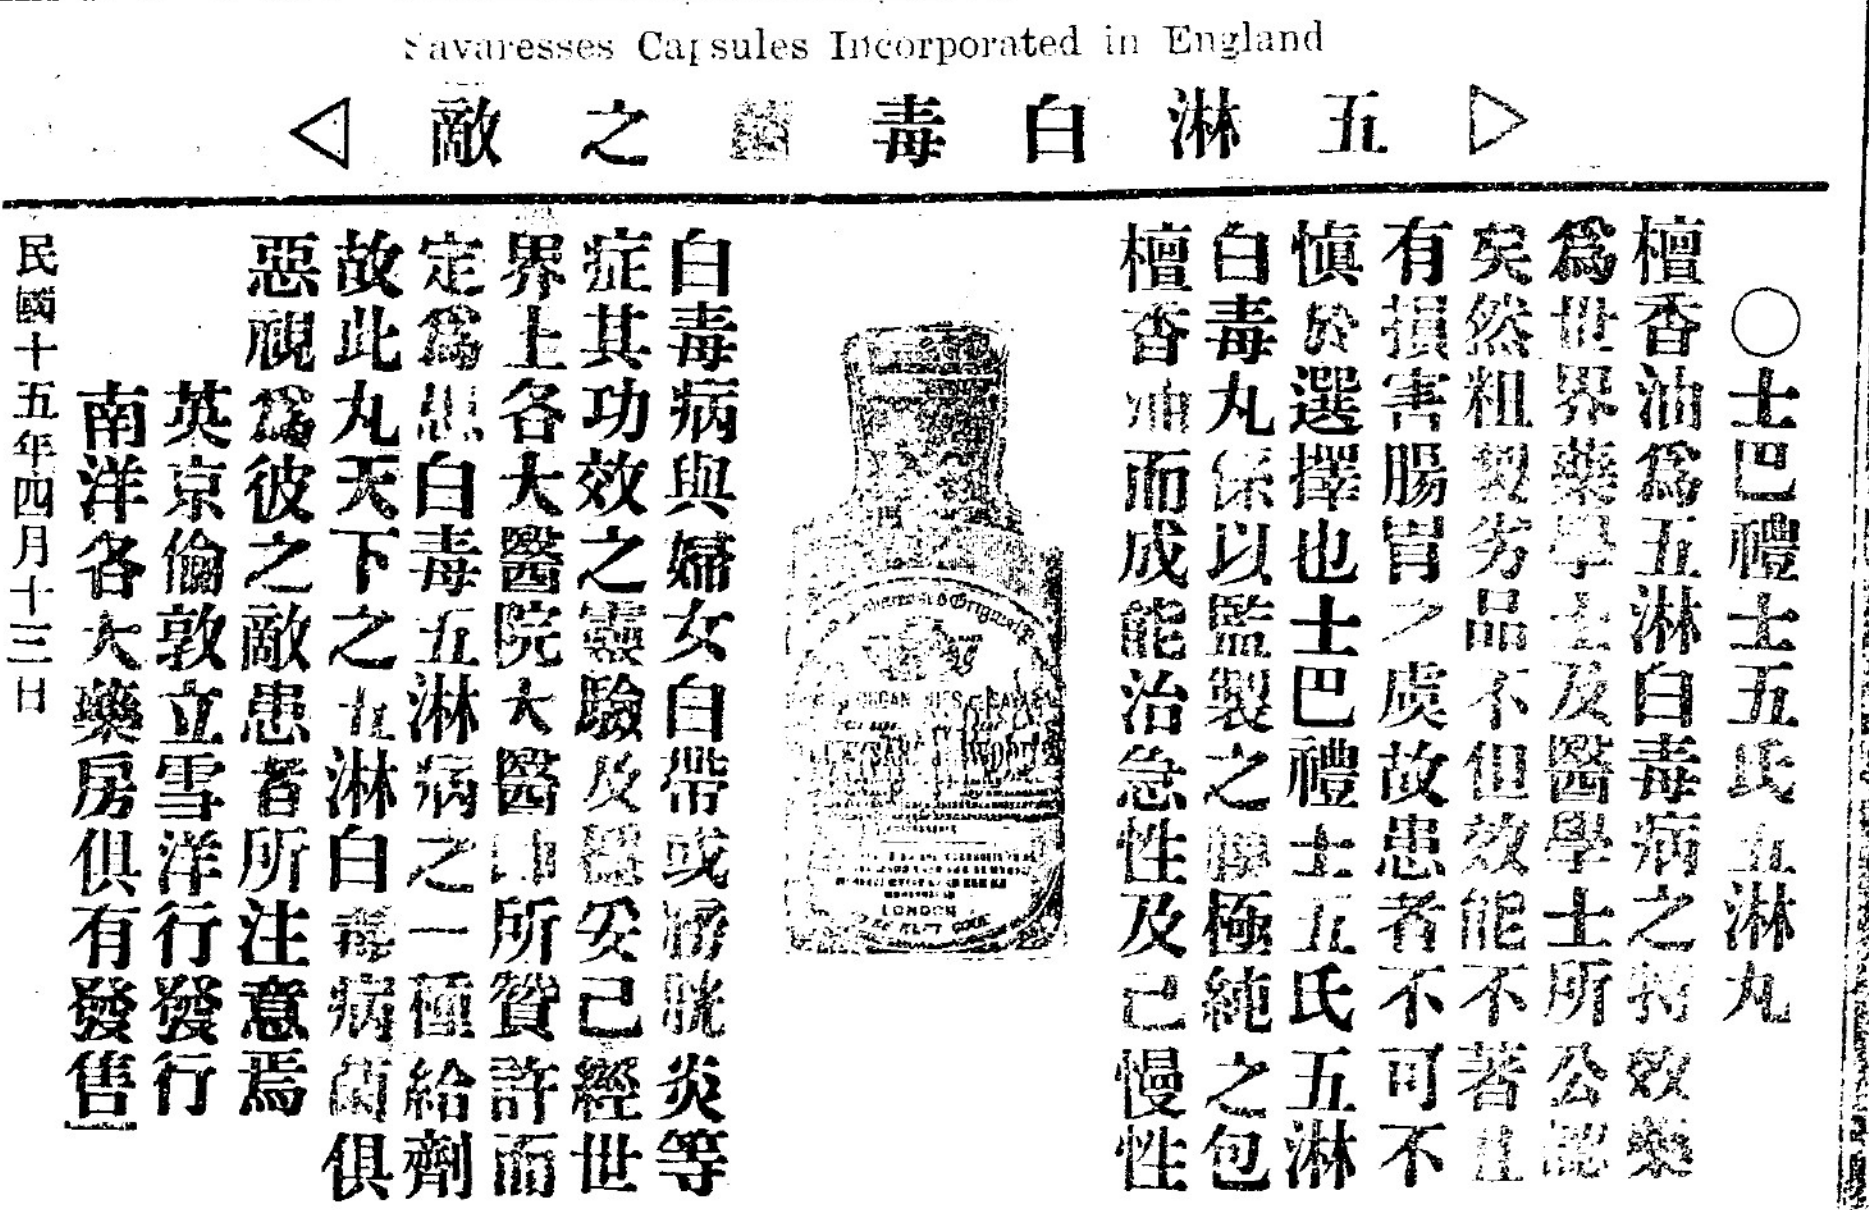 Savaresses Capsules Incorporated in England
五淋白毒之敵
○士巴禮士五氏五淋丸
檀香油爲五淋白毒病之特效藥
爲世界藥學士及醫學士所公認
矣然粗製劣品不但效能不著且
有損害腸胃之虞故患者不可不
愼於選擇也士巴禮士五氏五淋
白毒丸係以監製之極純之包
檀香油而成能治急性及己慢性
白毒病與婦女白帶或膀胱炎等
症其功效之靈驗及穩妥己經世
界上各大醫院大醫師所贊許而
定爲患白毒五淋病之一種給劑
故此丸天下之五淋白毒病菌俱
惡視爲彼之敵患者所注意焉
英京倫敦立雪洋行發行
南洋各大藥房俱有發售
民國十五年四月十三日
LONDON